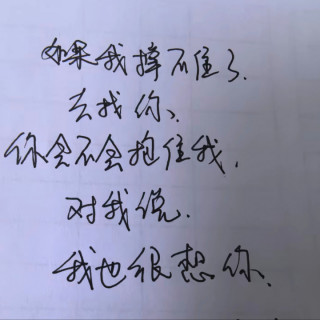 如果我撑不住了.
去找你、
你会不会抱住我.
对我说.
我也很想你.